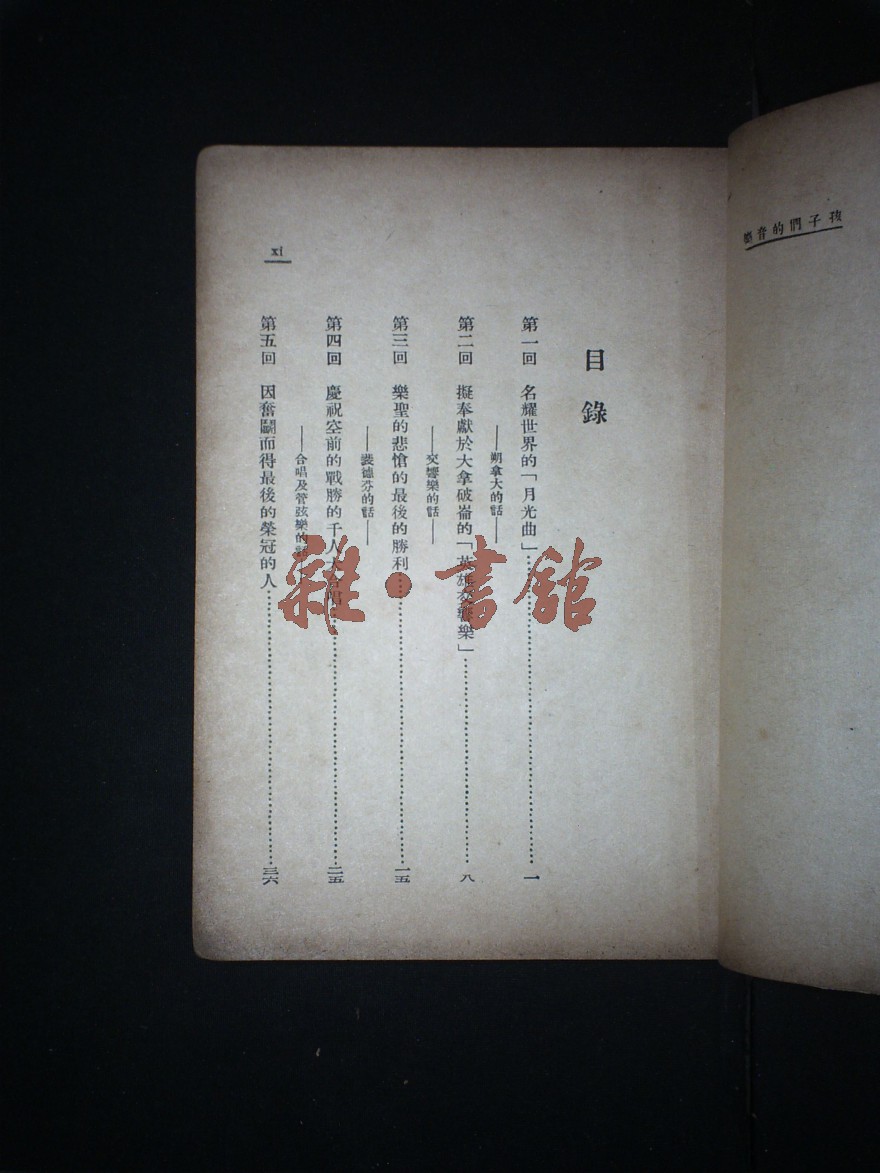 孩子們的音樂
xi
目錄
第一回 名耀世界的「月光曲」……一
——朔拿大的話——
第二回 擬奉獻於大拿破崙的「英雄交響樂」……八
——交響樂的話——
第三回 樂聖的悲愴的最後的勝利……一五
——裴德芬的話——
第四回 慶祝空前的戰勝的千人大合唱……二五
——合唱及管弦樂的話——
第五回 因奮鬭而得最後的榮冠的人……三六
雜·書館